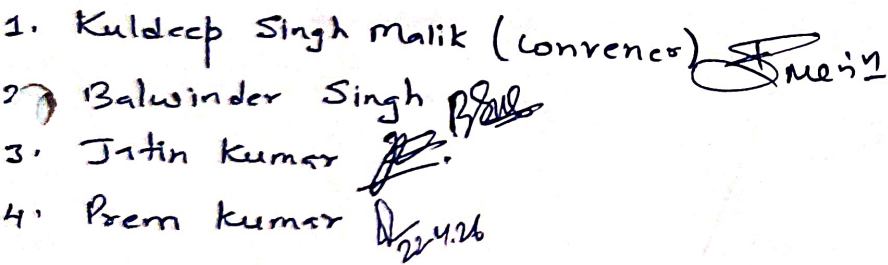 1. Kuldeep Singh Malik (Convener)
2 Balwinder Singh
3. Jatin Kumar
4. Prem Kumar 22.4.26